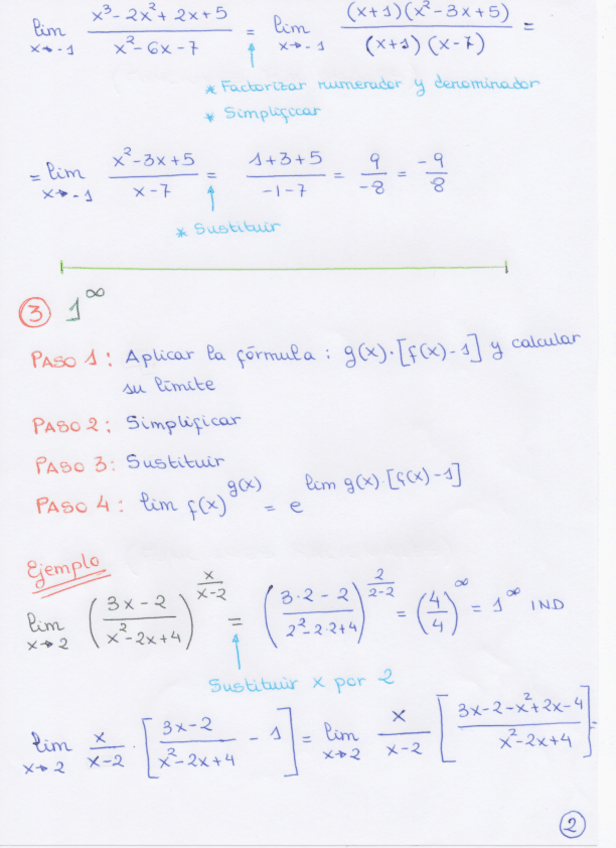 lim x→-1 (x³-2x²+2x+5)/(x²-6x-7) = lim x→-1 ((x+1)(x²-3x+5))/((x+1)(x-7)) =
* Factorizar numerador y denominador
* Simplificar
= lim x→-1 (x²-3x+5)/(x-7) = (1+3+5)/(-1-7) = 9/-8 = -9/8
* Sustituir
③ 1^∞
PASO 1: Aplicar la fórmula: g(x)·[f(x)-1] y calcular
su límite
PASO 2: Simplificar
PASO 3: Sustituir
PASO 4: lim f(x)^g(x) = e^(lim g(x)·[f(x)-1])
Ejemplo
lim x→2 ((3x-2)/(x²-2x+4))^(x/(x-2)) = ((3·2-2)/(2²-2·2+4))^(2/(2-2)) = (4/4)^∞ = 1^∞ IND
Sustituir x por 2
lim x→2 x/(x-2) · [(3x-2)/(x²-2x+4) - 1] = lim x→2 x/(x-2) [(3x-2-x²+2x-4)/(x²-2x+4)] =
②